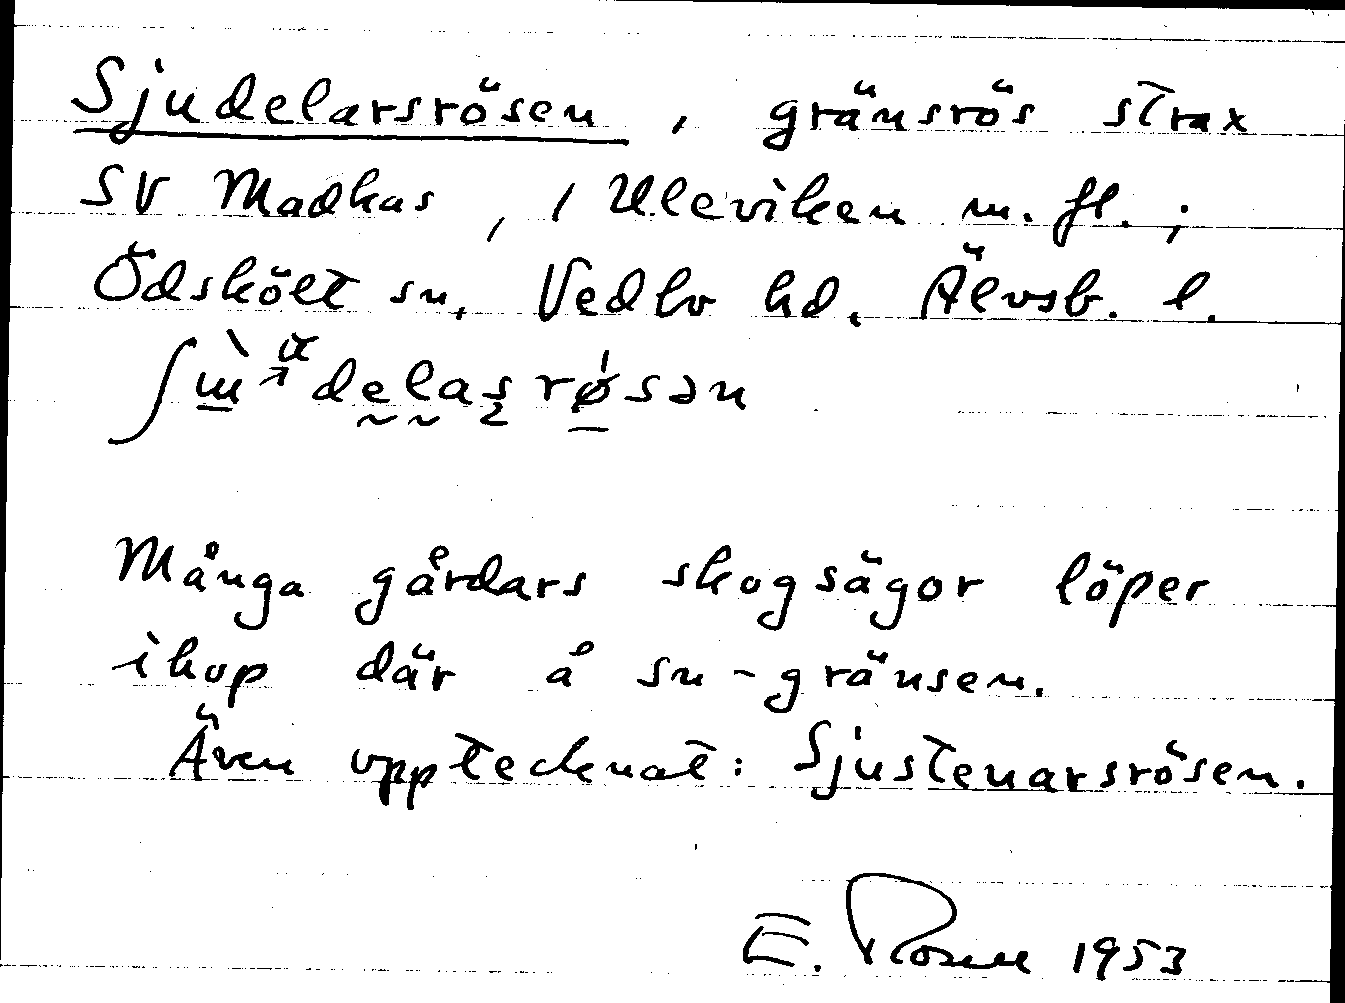 Sjudelarsrösen, gränsrös strax
SV Madkas, 1 Uleviken m. fl.;
Ödskölt sn, Vedbo hd, Älvsb. l.
Många gårdars skogsägor löper
ihop där å sn-gränsen.
Även upptecknat: Sjustenarsrösen.
E. 1953